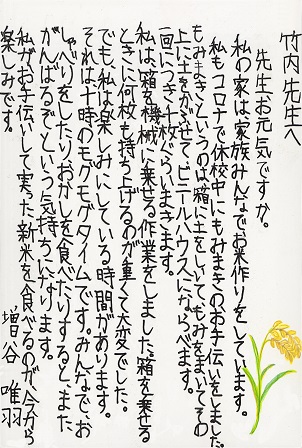 竹内先生へ
先生お元気ですか。
私の家は、家族みんなでお米作りをしています。
私もコロナで休校中にもみまきのお手伝いをしました。
もみまきというのは、箱に土をしいて、もみをまいて、その
上に土をかぶせて、ビニールハウスにならべます。
一回につき千枚ぐらいまきます。
私は、箱を機械に乗せる作業をしました。箱を乗せる
ときに何枚も持ち上げるのが重くて大変でした。
でも、私は楽しみにしている時間があります。
それは十時のモグモグタイムです。みんなで、お
しゃべりをしたりおかしを食べたりすると、また
がんばるぞという気持ちになります。
私がお手伝いして実った新米を食べるのが、今から
楽しみです。
増谷 唯羽